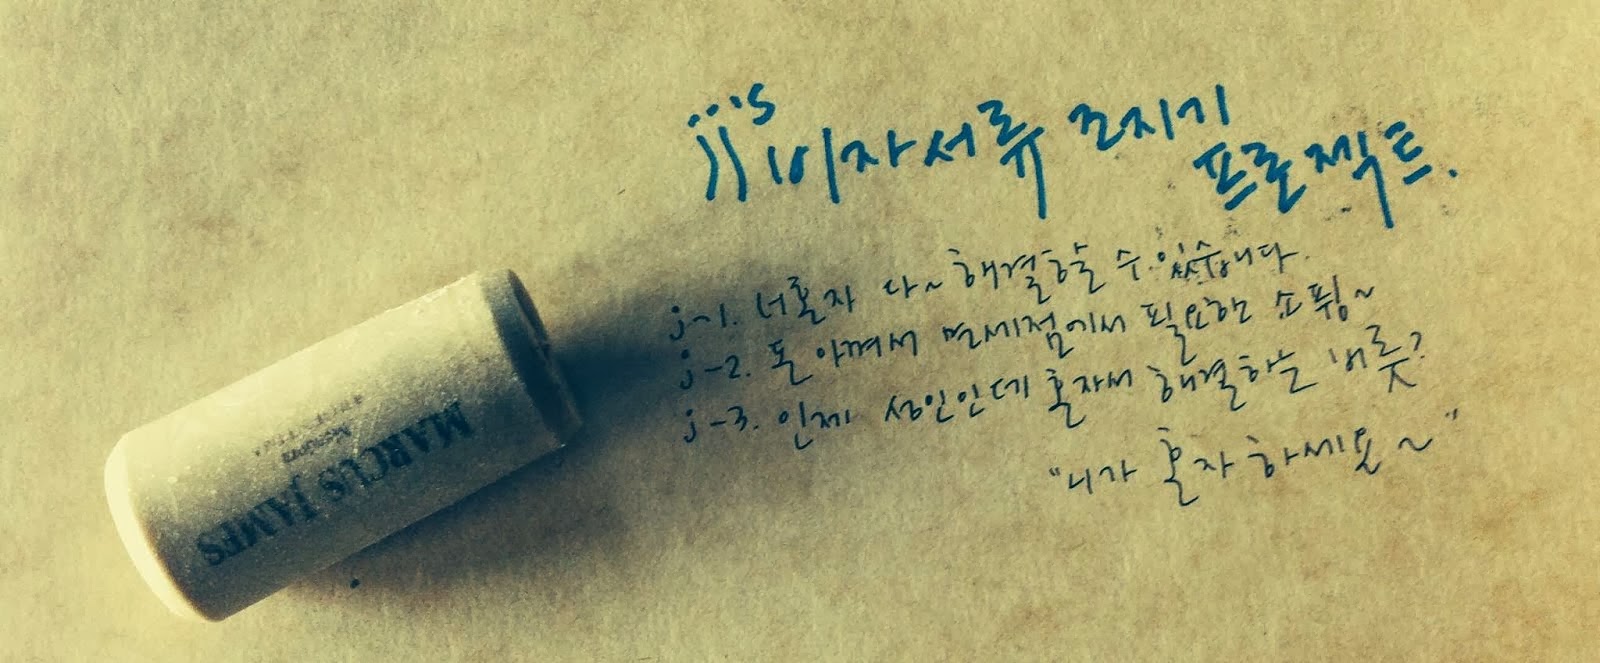 jj's 비자서류 조지기
프로젝트.
j-1. 너혼자 다~ 해결할 수 있습니다.
j-2. 돈 아껴서 면세점에서 필요한 쇼핑~
j-3. 인제 성인인데 혼자서 해결하는 버릇?
"니가 혼자 하세요~"
MARCUS JAMES